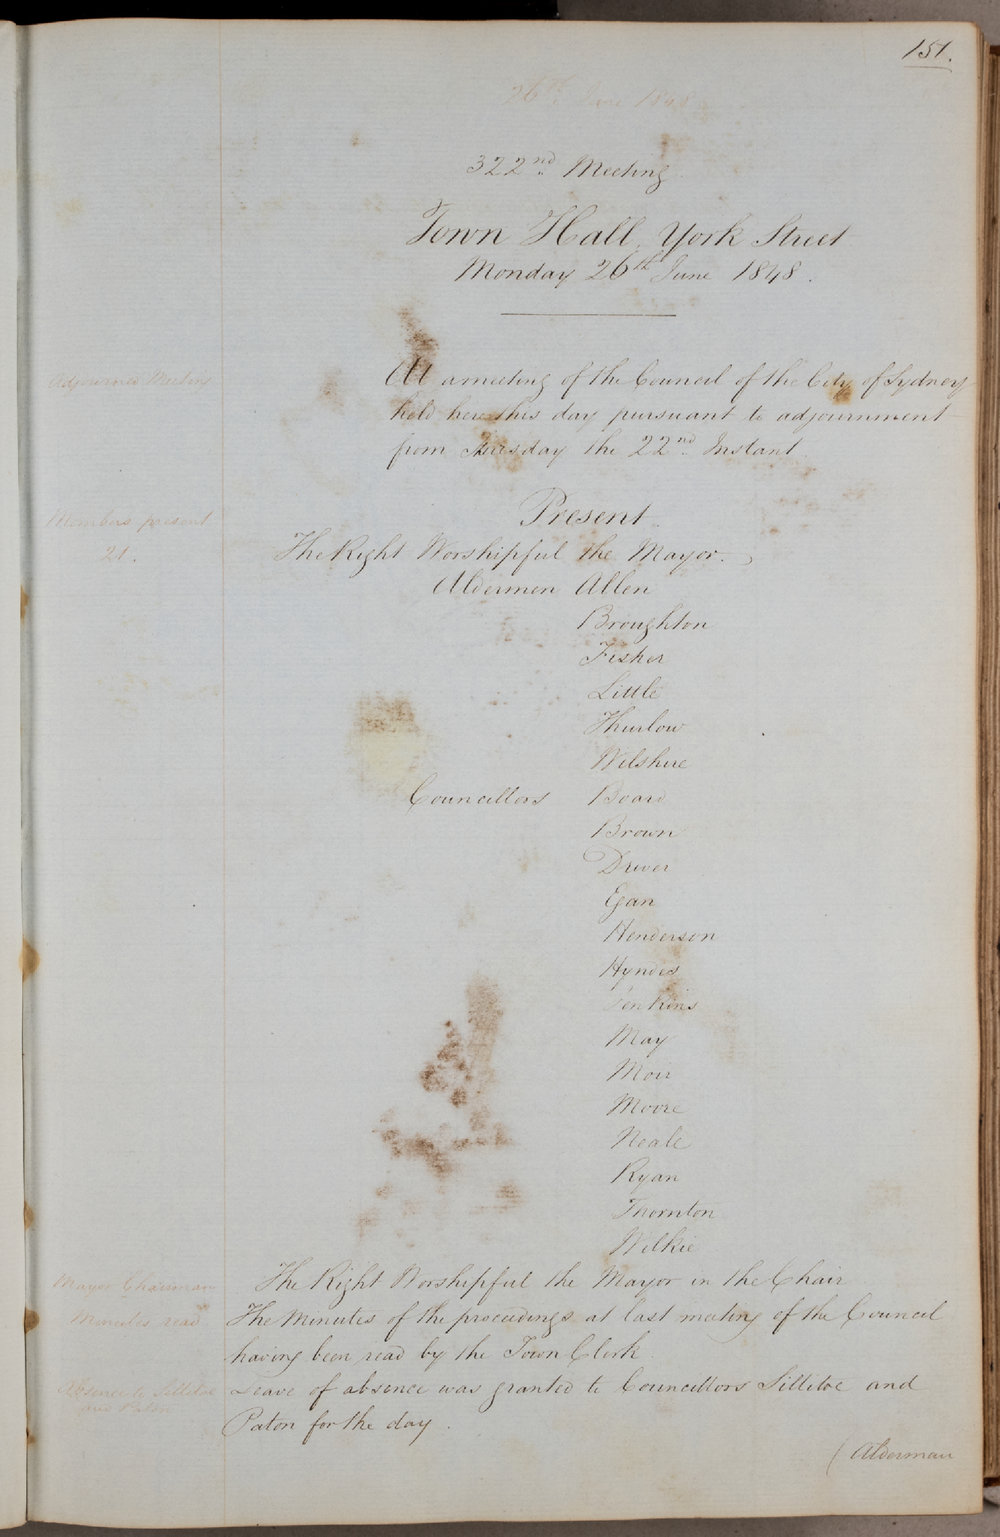 151.
26th June 1848
322nd Meeting
Town Hall, York Street
Monday 26th June 1848.
Adjourned Meeting
At a meeting of the Council of the City of Sydney
held here this day pursuant to adjournment
from Thursday the 22nd Instant.
Present
Members present
21.
The Right Worshipful the Mayor.
Aldermen Allen
Broughton
Fisher
Little
Thurlow
Wilshire
Councillors Board
Brown
Driver
Egan
Henderson
Hyndes
Jenkins
May
Moir
Moore
Neale
Ryan
Thornton
Wilkie
Mayor Chairman
The Right Worshipful the Mayor in the Chair
Minutes read
The Minutes of the proceedings at last meeting of the Council
having been read by the Town Clerk.
Absence to Sillitoe
and Paton
Leave of absence was granted to Councillors Sillitoe and
Paton for the day.
(Alderman